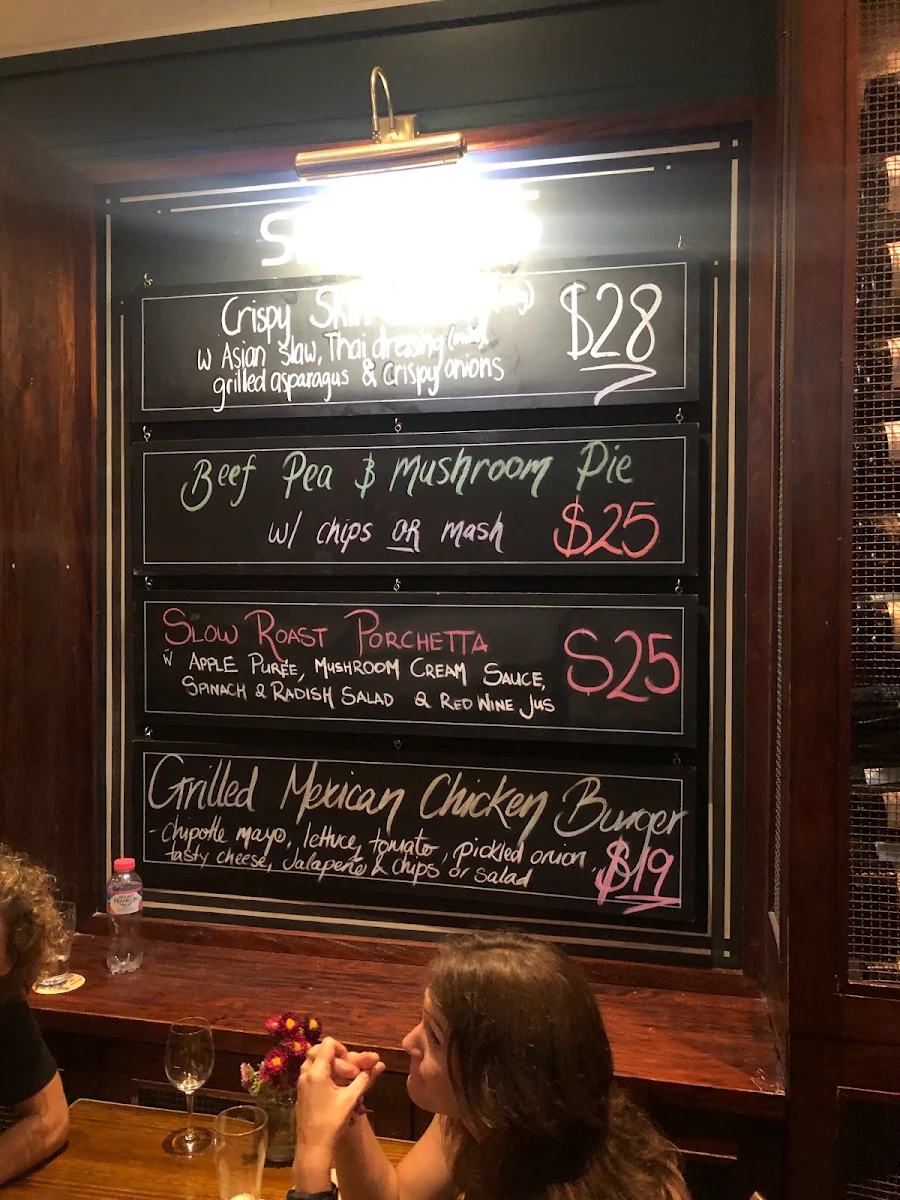 Crispy Skin
$28
w Asian slaw, Thai dressing (mild),
grilled asparagus & crispy onions
Beef Pea & Mushroom Pie
w/ chips OR mash
$25
SLOW ROAST PORCHETTA
$25
W APPLE PURÉE, MUSHROOM CREAM SAUCE,
SPINACH & RADISH SALAD & RED WINE JUS
Grilled Mexican Chicken Burger
- chipotle mayo, lettuce, tomato, pickled onion,
tasty cheese, Jalapeño & chips or salad
$19